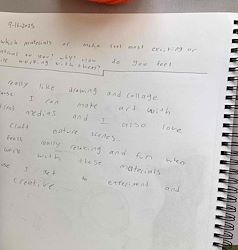 9-16-2025
which materials or make feel most exciting or
to you? why? How do you feel
working with them?
really like drawing and collage
I can make art with
medias and I also love
craft nature scenes.
feels really relaxing and fun when
work with these materials
I get to experiment and
creative.